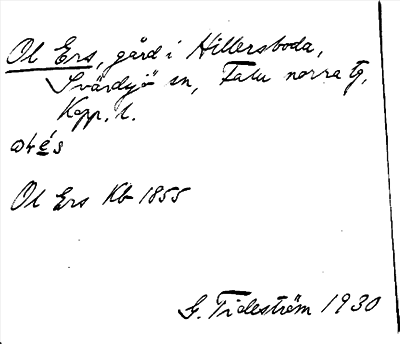 Ol Ers, gård i Hillersboda,
Svärdsjö sn, Falu norra tg,
Kopp. l.
Ol Ers Kb 1855
G. Tideström 1930